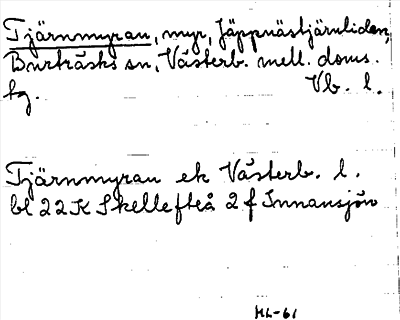 Tjärnmyran, myr, Jäppnästjärnliden,
Burträsks sn, Västerb. mell. doms.
fg. Vb. l.
Tjärnmyran ek Västerb. l.
bl 22K Skellefteå 2 f Innansjön
HL-61